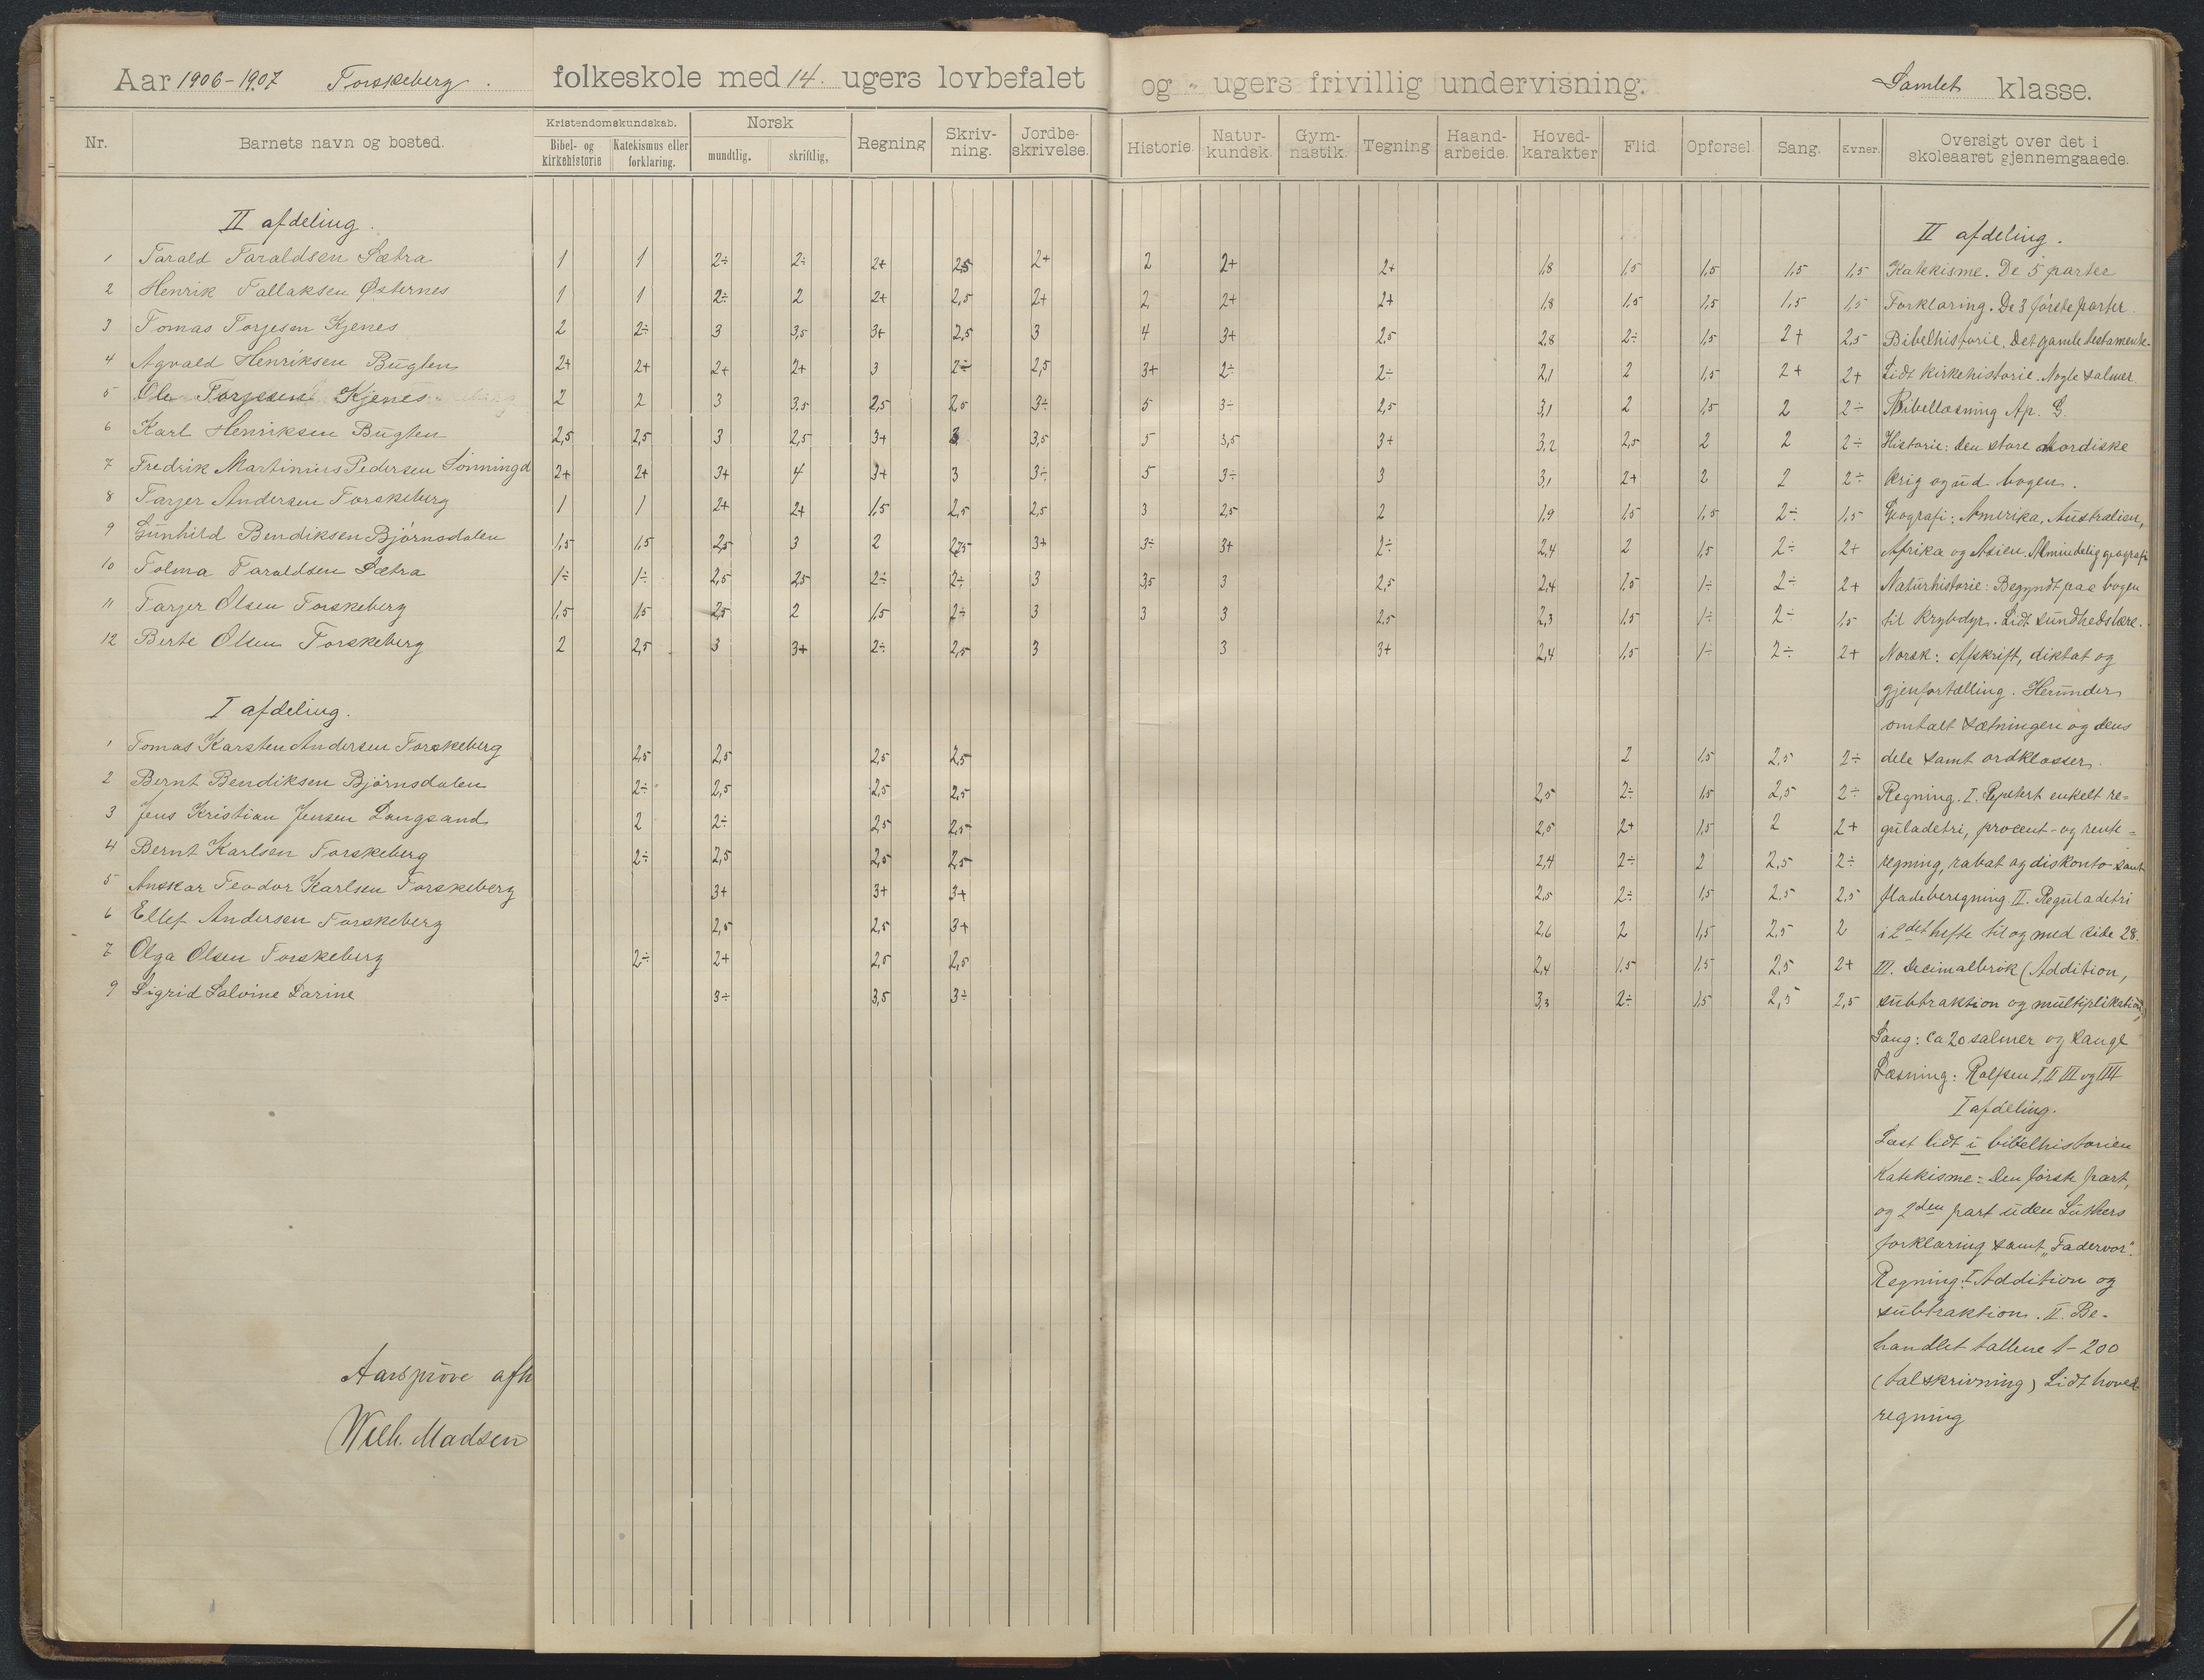 Aar 1906-1907 Torskeberg. folkeskole med 14. ugers lovbefalet og " ugers frivillig undervisning. Samlet klasse.
Nr. Barnets navn og bosted. Kristendomskundskab. Bibel- og kirkehistorie Katekismus eller forklaring. Norsk mundtlig. skriftlig, Regning Skriv-ning. Jordbe-skrivelse. Historie. Natur-kundsk. Gym-nastik. Tegning Haand-arbeide. Hoved-karakter Flid. Opførsel. Sang. Evner. Oversigt over det i skoleaaret gjennemgaaede.
II afdeling. II afdeling.
1 Tarald Taraldsen Sætra 1 1 2÷ 2÷ 2+ 2,5 2+ 2 2+ 2+ 1,8 1,5 1,5 1,5 1,5 Katekisme. De 5 parter
2 Henrik Tallaksen Østernes 1 1 2÷ 2 2+ 2,5 2+ 2 2+ 2+ 1,8 1,5 1,5 1,5 1,5 Forklaring. De 3 første parter.
3 Tomas Torjesen Kjenes 2 2÷ 3 3,5 3+ 2,5 3 4 3+ 2,5 2,8 2÷ 1,5 2+ 2,5 Bibelhistorie. Det gamle testamente.
4 Agvald Henriksen Bugten 2+ 2+ 2+ 2+ 3 2÷ 2,5 3+ 2÷ 2÷ 2,1 2 1,5 2+ 2+ Lidt kirkehistorie. Nogle salmer.
5 Ole Torjesen Kjenes 2 2 3 3,5 2,5 2,5 3÷ 5 3÷ 2,5 3,1 2 1,5 2 2÷ Bibellæsning Ap. G.
6 Karl Henriksen Bugten 2,5 2,5 3 2,5 3+ 3 3,5 5 3,5 3+ 3,2 2,5 2 2 2÷ Historie: den store nordiske
7 Fredrik Martinius Pedersen Lønningd 2+ 2+ 3+ 4 3+ 3 3÷ 5 3÷ 3 3,1 2+ 2 2 2÷ krig og ud bogen.
8 Tarjer Andersen Torskeberg 1 1 2+ 2+ 1,5 2,5 2,5 3 2,5 2 1,9 1,5 1,5 2÷ 1,5 Geografi: Amerika, Australien,
9 Gunhild Bendiksen Bjørnsdalen 1,5 1,5 2,5 3 2 2,5 3+ 3÷ 3+ 2÷ 2,4 2 1,5 2÷ 2+ Afrika og Asien. Almindelig geografi
10 Tolma Taraldsen Sætra 1÷ 1÷ 2,5 2,5 2÷ 2÷ 3 3,5 3 2,5 2,4 1,5 1÷ 2÷ 2+ Naturhistorie: Begyndt paa bogen
11 Tarjer Olsen Torskeberg 1,5 1,5 2,5 2 1,5 2÷ 3 3 3 2,5 2,3 1,5 1÷ 2÷ 1,5 til krybdyr. Lidt sundhedslære.
12 Berte Olsen Torskeberg 2 2,5 3 3+ 2÷ 2,5 3 3 3+ 2,4 1,5 1÷ 2÷ 2+ Norsk: Afskrift, diktat og
gjenfortælling. Herunder
I afdeling. omtalt sætningen og dens
1 Tomas Karsten Andersen Torskeberg 2,5 2,5 2,5 2,5 2 1,5 2,5 2÷ dele samt ordklasser.
2 Bernt Bendiksen Bjørnsdalen 2÷ 2,5 2,5 2,5 2,5 2÷ 1,5 2,5 2÷ Regning. I. Repetert enkelt re=
3 Jens Kristian Jensen Langsand 2 2÷ 2,5 2,5 2,5 2+ 1,5 2 2+ guladetri, procent- og rente=
4 Bernt Karlsen Torskeberg 2÷ 2,5 2,5 2,5 2,4 2÷ 2 2,5 2÷ regning, rabat og diskonto samt
5 Anskar Teodor Karlsen Torskeberg 3+ 3+ 3+ 2,5 2÷ 1,5 2,5 2,5 fladeberegning. II. Reguladetri
6 Ellef Andersen Torskeberg 2,5 2,5 3+ 2,6 2 1,5 2,5 2 i 2det hefte til og med side 28.
7 Olga Olsen Torskeberg 2÷ 2+ 2,5 2,5 2,4 1,5 1,5 2,5 2+ III. Decimalbrøk (Addition,
9 Sigrid Salvine Larine 3÷ 3,5 3÷ 3,3 2÷ 1,5 2,5 2,5 subtraktion og multiplikation)
Sang: Ca 20 salmer og sange
Læsning: Rolfsen I, II III og IIII
I afdeling.
Læst lidt i bibelhistorien
Katekisme: Den første part,
og 2den part uden Luthers
forklaring samt „Fadervor".
Regning: I Addition og
subtraktion. II. Be-
handlet tallene 1-200
Aarsprøve afh (talskrivning) Lidt hoved-
Wilh. Madsen regning